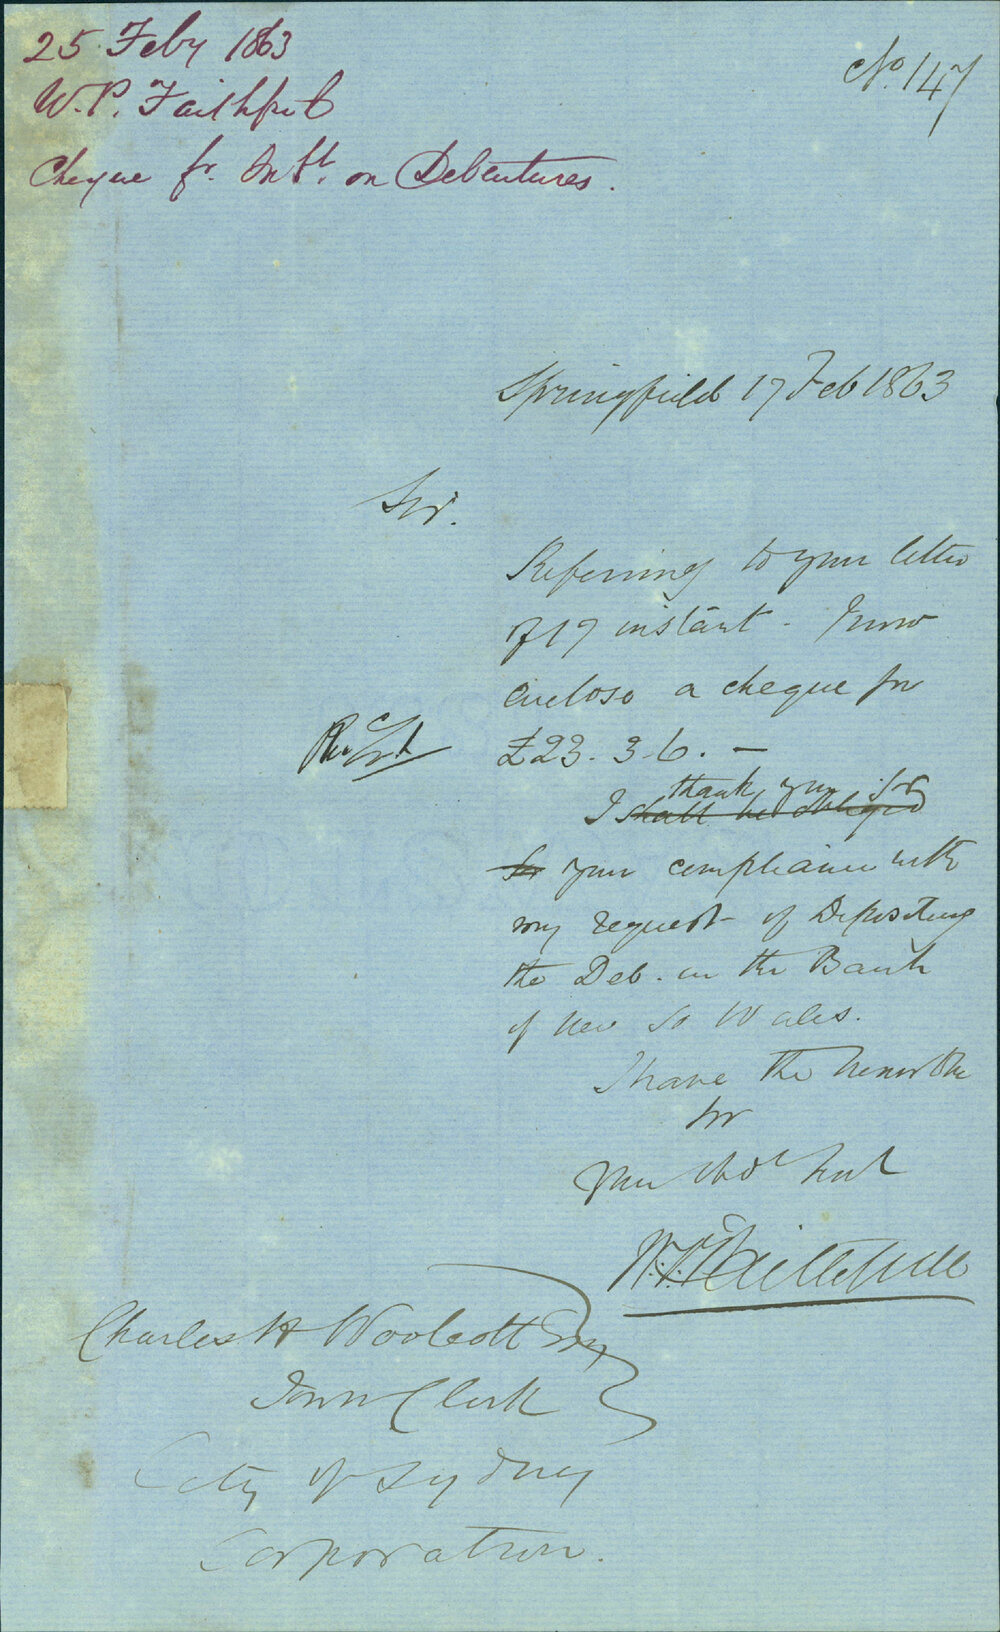 25 Feby 1863
No. 147
W. P. Faithful
Cheque for Intt. on Debentures.
Springfield 17 Feb 1863
Sir.
Referring to your letter
of 17 instant - I now
enclose a cheque for
£23-3-6. -
thank you for
I shall be obliged
for your compliance with
my request of Depositing
the Deb. in the Bank
of New So Wales.
I have the honor to be
Sir
Your Obdt Svt
W. P. Faithfull
Charles H Woolcott Esq
Town Clerk
City of Sydney
Corporation.